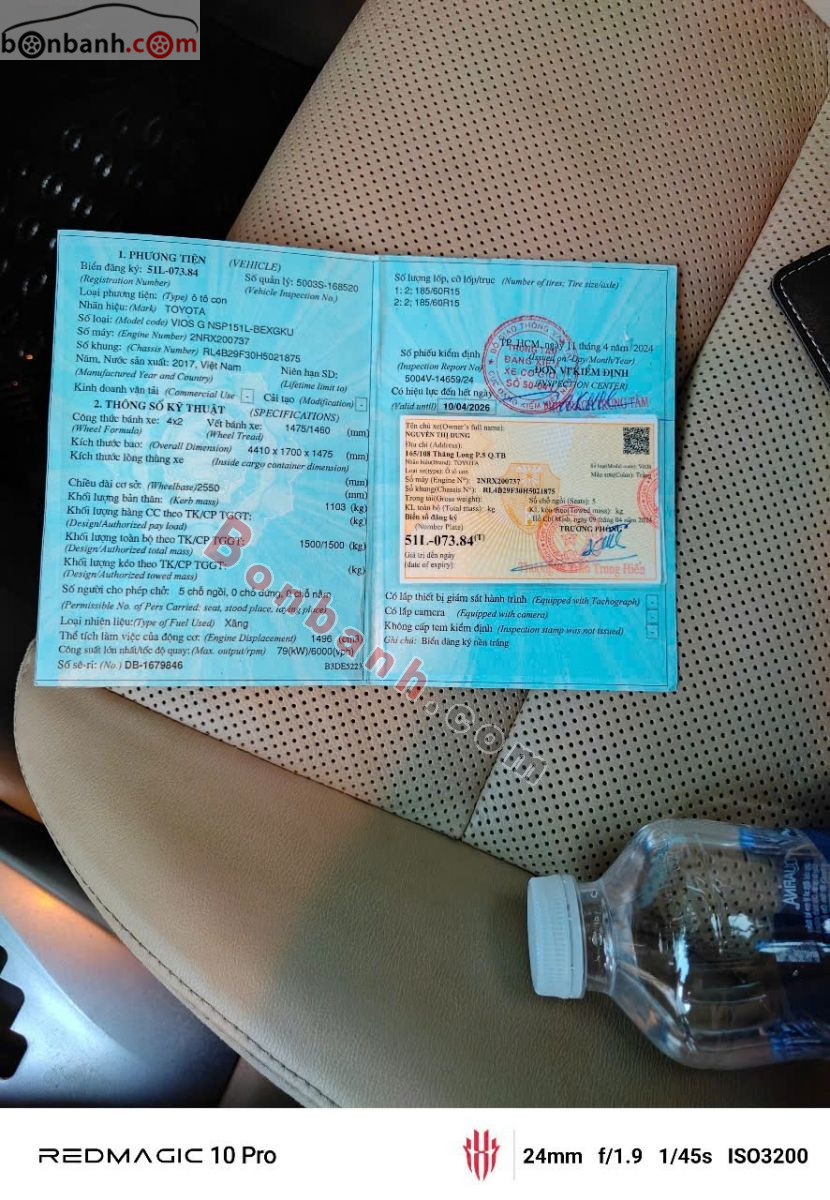 bonbanh.com
1. PHƯƠNG TIỆN (VEHICLE)
Biển đăng ký: 51L-073.84 Số quản lý: 5003S-168520
(Registration Number) (Vehicle Inspection No.)
Loại phương tiện: (Type) ô tô con
Nhãn hiệu: (Mark) TOYOTA
Số loại: (Model code) VIOS G NSP151L-BEXGKU
Số máy: (Engine Number) 2NRX200737
Số khung: (Chassis Number) RL4B29F30H5021875
Năm, Nước sản xuất: 2017, Việt Nam Niên hạn SD:
(Manufactured Year and Country) (Lifetime limit to)
Kinh doanh vận tải (Commercial Use - Cải tạo (Modification) -
2. THÔNG SỐ KỸ THUẬT (SPECIFICATIONS)
Công thức bánh xe: 4x2 Vết bánh xe: 1475/1460 (mm)
(Wheel Formula) (Wheel Tread)
Kích thước bao: (Overall Dimension) 4410 x 1700 x 1475 (mm)
Kích thước lòng thùng xe (Inside cargo container dimension)
(mm)
Chiều dài cơ sở: (Wheelbase) 2550 (mm)
Khối lượng bản thân: (Kerb mass) 1103 (kg)
Khối lượng hàng CC theo TK/CP TGGT: (kg)
(Design/Authorized pay load)
Khối lượng toàn bộ theo TK/CP TGGT: 1500/1500 (kg)
(Design/Authorized total mass)
Khối lượng kéo theo TK/CP TGGT: (kg)
(Design/Authorized towed mass)
Số người cho phép chở: 5 chỗ ngồi, 0 chỗ đứng, 0 chỗ nằm
(Permissible No. of Pers Carried: seat, stood place, laying place)
Loại nhiên liệu: (Type of Fuel Used) Xăng
Thể tích làm việc của động cơ: (Engine Displacement) 1496 (cm3)
Công suất lớn nhất/tốc độ quay: (Max. output/rpm) 79(kW)/6000(vph)
Số sê-ri: (No.) DB-1679846
Số lượng lốp, cỡ lốp/trục (Number of tires; Tire size/axle)
1: 2; 185/60R15
2: 2; 185/60R15
TP. HCM, ngày 11 tháng 4 năm 2024
Số phiếu kiểm định (Issued on: Day/Month/Year)
(Inspection Report No) ĐƠN VỊ KIỂM ĐỊNH
5004V-14659/24 (INSPECTION CENTER)
Có hiệu lực đến hết ngày
(Valid until) 10/04/2026
Tên chủ xe (Owner's full name):
NGUYỄN THỊ DUNG
Địa chỉ (Address):
165/108 Thăng Long P.5 Q.TB
Nhãn hiệu(Brand): TOYOTA
Số máy (Engine N°): 2NRX200737
Số khung(Chassis N°): RL4B29F30H5021875
Trọng tải(Gross weight): Số chỗ ngồi (Seats): 5
KL toàn bộ (Total mass): kg KL kéo theo(Towed mass): kg
Biển số đăng ký
(Number Plate)
51L-073.84(T)
Giá trị đến ngày
(date of expiry):
Có lắp thiết bị giám sát hành trình (Equipped with Tachograph) -
Có lắp camera (Equipped with camera) -
Không cấp tem kiểm định (Inspection stamp was not issued) -
Ghi chú: Biển đăng ký nền trắng
Bonbanh.com
REDMAGIC 10 Pro
24mm f/1.9 1/45s ISO3200